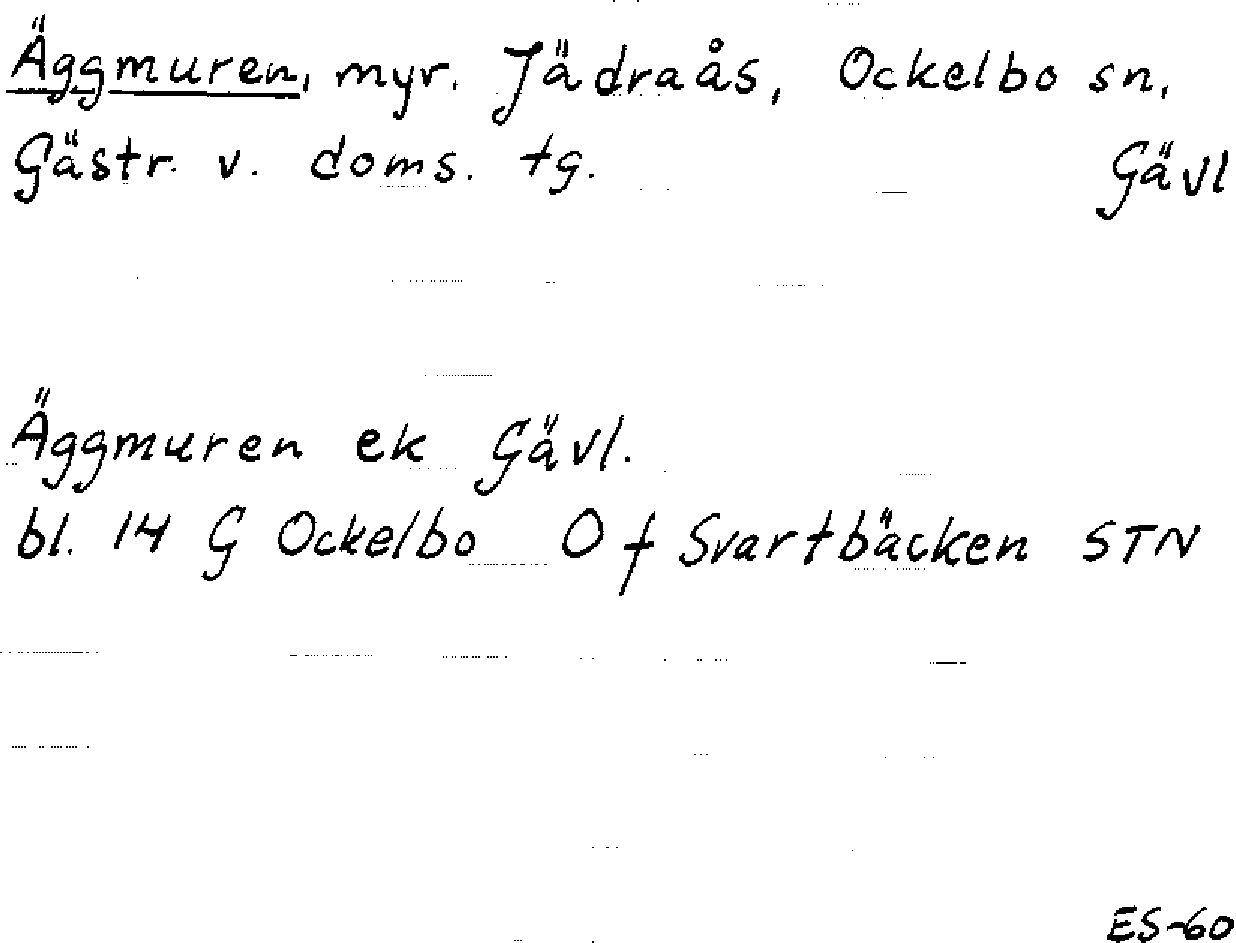 Äggmuren, myr. Jädraås, Ockelbo sn,
Gästr. v. doms. tg. Gävl
Äggmuren ek Gävl.
bl. 14 G Ockelbo O f Svartbäcken STN
ES-60